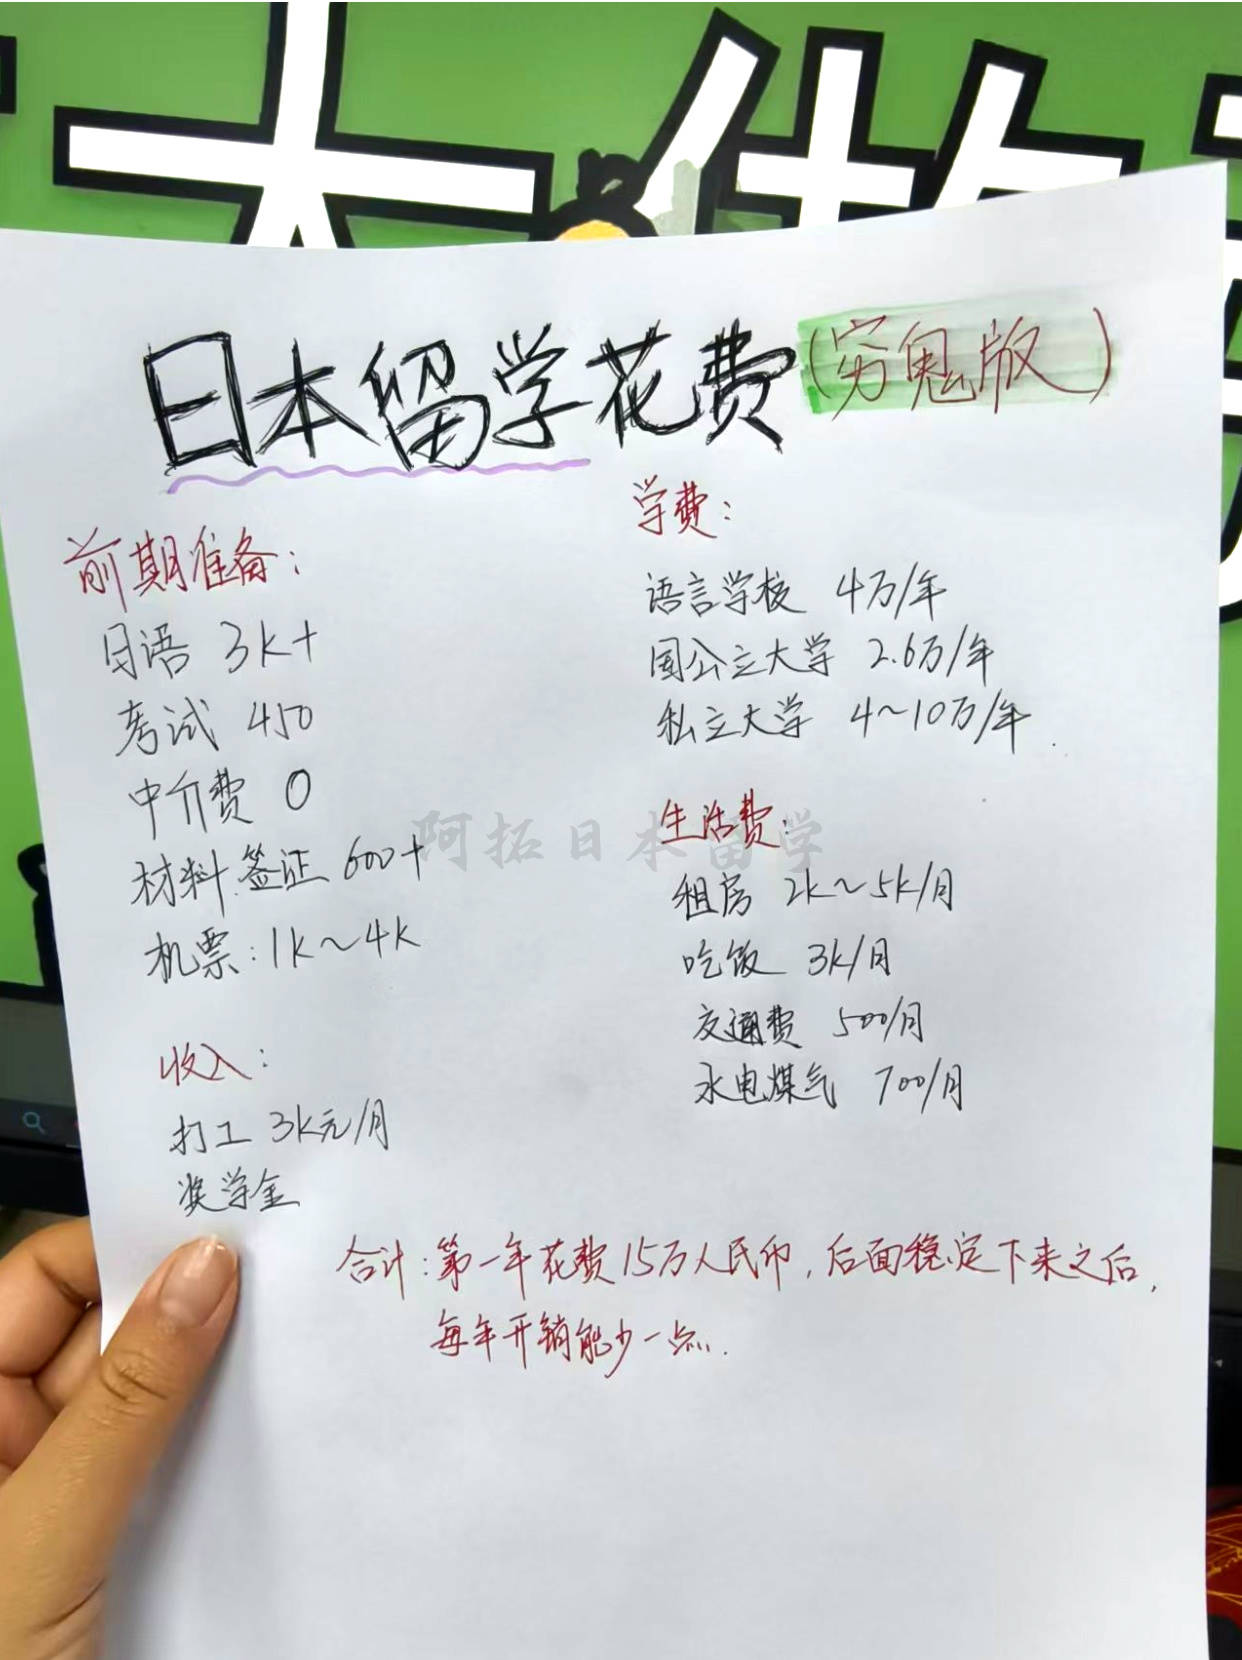 大做
日本留学花费(穷鬼版)
前期准备:
日语 3k+
考试 450
中介费 0
材料.签证 600+
机票:1k~4k
收入:
打工 3k元/月
奖学金
学费:
语言学校 4万/年
国公立大学 2.6万/年
私立大学 4~10万/年.
生活费:
租房 2k~5k/月
吃饭 3k/月
交通费 500/月
水电煤气 700/月
合计:第一年花费15万人民币,后面稳定下来之后,
每年开销能少一点.
阿拓日本留学